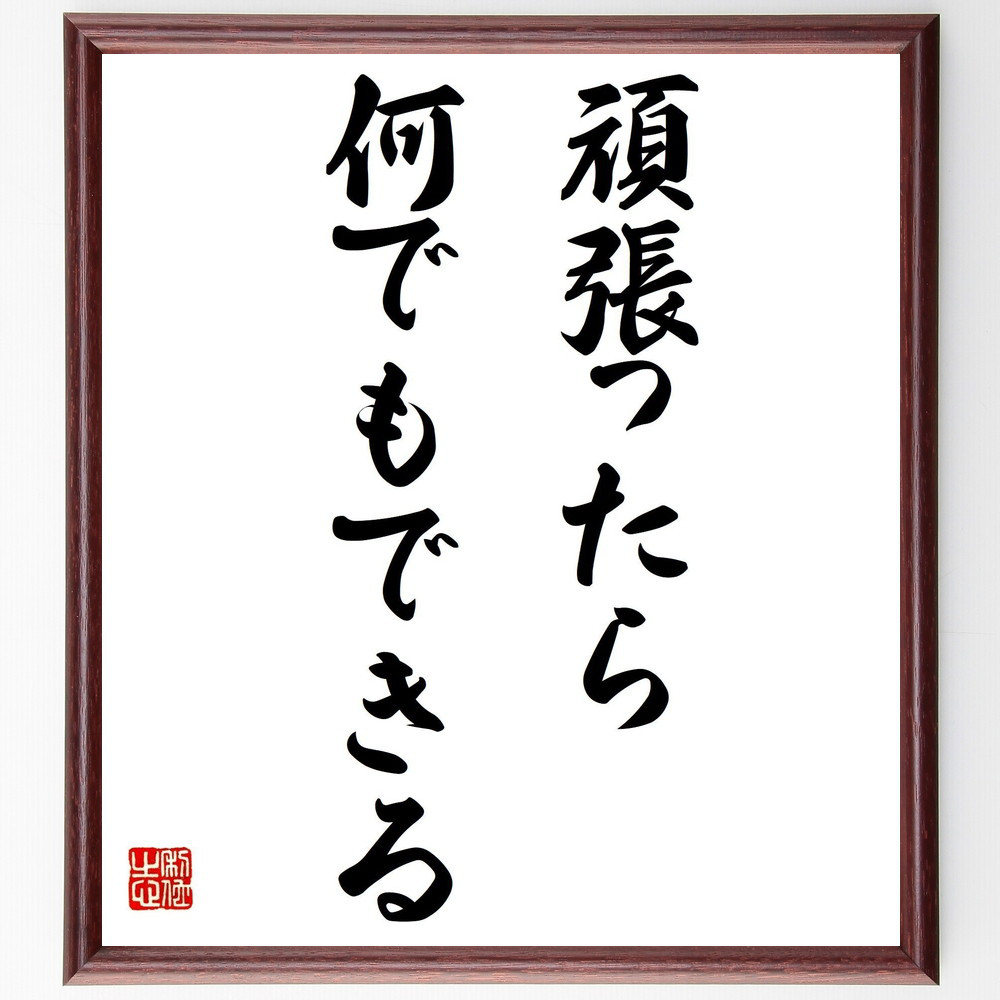 頑張ったら
何でもできる